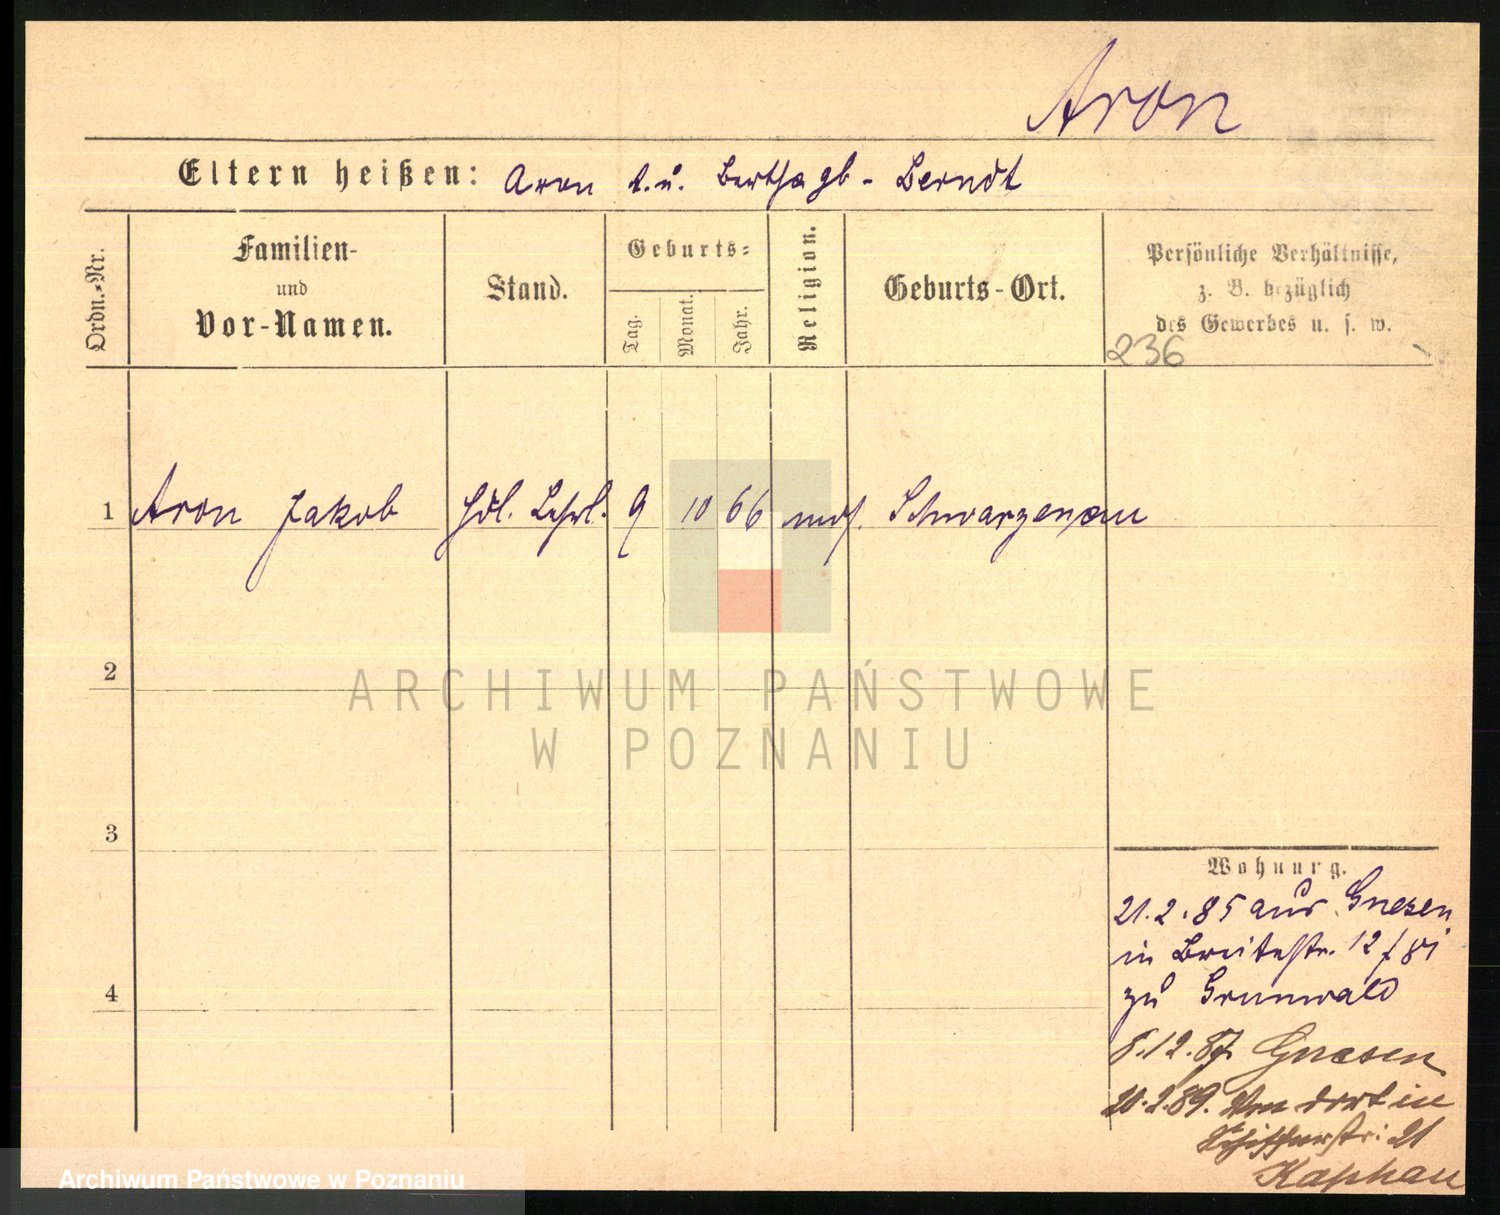 Aron
Eltern heißen: Aron t. u. Bertha gb - Berndt
Ordn.-Nr.
Familien-
und
Vor-Namen.
Stand.
Geburts-
Tag.
Monat.
Jahr.
Religion.
Geburts-Ort.
Persönliche Verhältnisse,
z. B. bezüglich
des Gewerbes u. s. w.
236
1 Aron Jakob Hdl. Lehrl. 9 10 66 mos. Schwarzenau
2
ARCHIWUM PAŃSTWOWE
W POZNANIU
3
Wohnung.
21.2.85 aus Gnesen
in Breitestr. 12
4
zu Grunwald
8.12.87 Gnesen
20.2.89. Von dort in
Schifferstr: 21
Kaphan
Archiwum Państwowe w Poznaniu